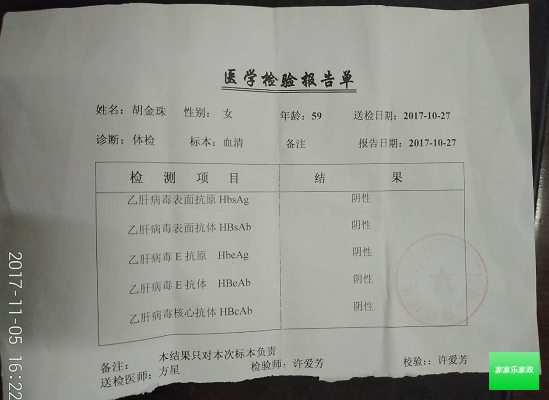 医学检验报告单
姓名：胡金珠 性别：女 年龄：59 送检日期：2017-10-27
诊断：体检 标本：血清 备注 报告日期：2017-10-27
检 测 项 目 结 果
乙肝病毒表面抗原 HbsAg 阴性
乙肝病毒表面抗体 HBsAb 阴性
乙肝病毒 E 抗原 HbeAg 阴性
乙肝病毒 E 抗体 HBeAb 阴性
乙肝病毒核心抗体 HBcAb 阴性
备注： 本结果只对本次标本负责
送检医师：方星 检验师：许爱芳 校验：：许爱芳
2017-11-05 16:22
家家乐家政